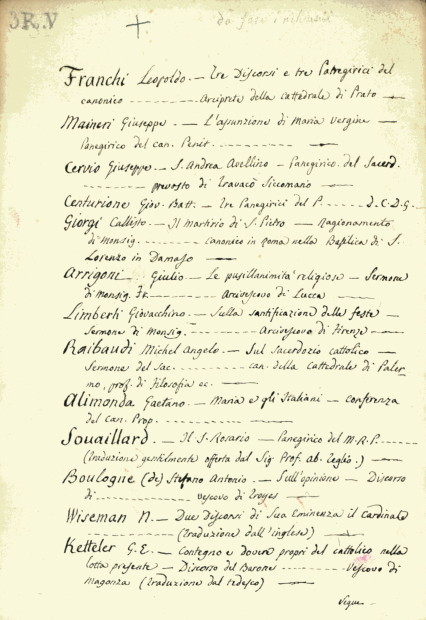 3R.V
Franchi Leopoldo. — Tre Discorsi e tre Panegirici del
canonico ---------- Arciprete della cattedrale di Prato —
Maineri Giuseppe — L'assunzione di Maria Vergine —
Panegirico del can. Penit. ------------ —
Cervio Giuseppe — S. Andrea Avellino — Panegirico del Sacerd.
---------- prevosto di Travacò Siccomario —
Centurione Giov. Batt. — Tre Panegirici del P. ------ d. C. D. G. —
Giorgi Callisto — Il martirio di S. Pietro — Ragionamento
di Monsig. --------- canonico in Roma nella Basilica di S.
Lorenzo in Damaso —
Arrigoni Giulio — Le pusillanimità religiose — Sermone
di Monsig. Fr. --------- Arcivescovo di Lucca —
Limberti Giovacchino — Sulla santificazione delle feste —
Sermone di Monsig. --------- Arcivescovo di Firenze —
Raibaudi Michel Angelo — Sul sacerdozio cattolico —
Sermone del Sac. --------- can. della Cattedrale di Paler
mo, prof. di filosofia ec. —
Alimonda Gaetano. — Maria e gli Italiani — Conferenza
del can. Prop. ------------ —
Souaillard. — Il S. Rosario — Panegirico del M.R.P. ------
(traduzione gentilmente offerta dal Sig. Prof. ab.
Boulogne (de) Stefano Antonio. — Sull'opinione — Discorso
di ------------ vescovo di Troyes —
Wiseman N. — Due Discorsi di Sua Eminenza il Cardinale
------------ (traduzione dall'inglese) —
Ketteler G.E. — Contegno e dovere propri del cattolico nella
lotta presente — Discorso del Barone --------- Vescovo di
Magonza (traduzione dal tedesco) —
Segue.